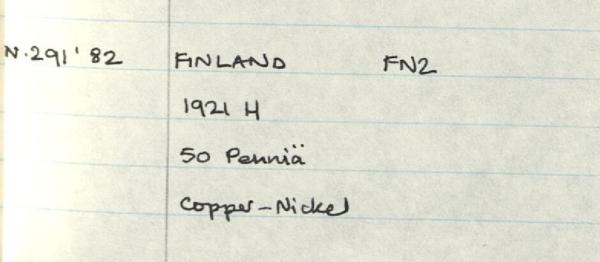 N.291'82 FINLAND FN2
1921 H
50 Penniä
Copper-Nickel